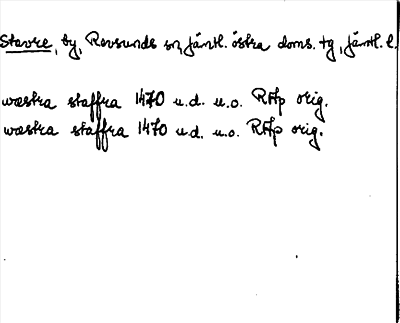 Stavre, by, Revsunds sn, Jämtl. östra doms. tg, Jämtl. l.
wæstra staffra 1470 u.d. u.o. RAp orig.
wæstra staffra 1470 u.d. u.o. RAp orig.